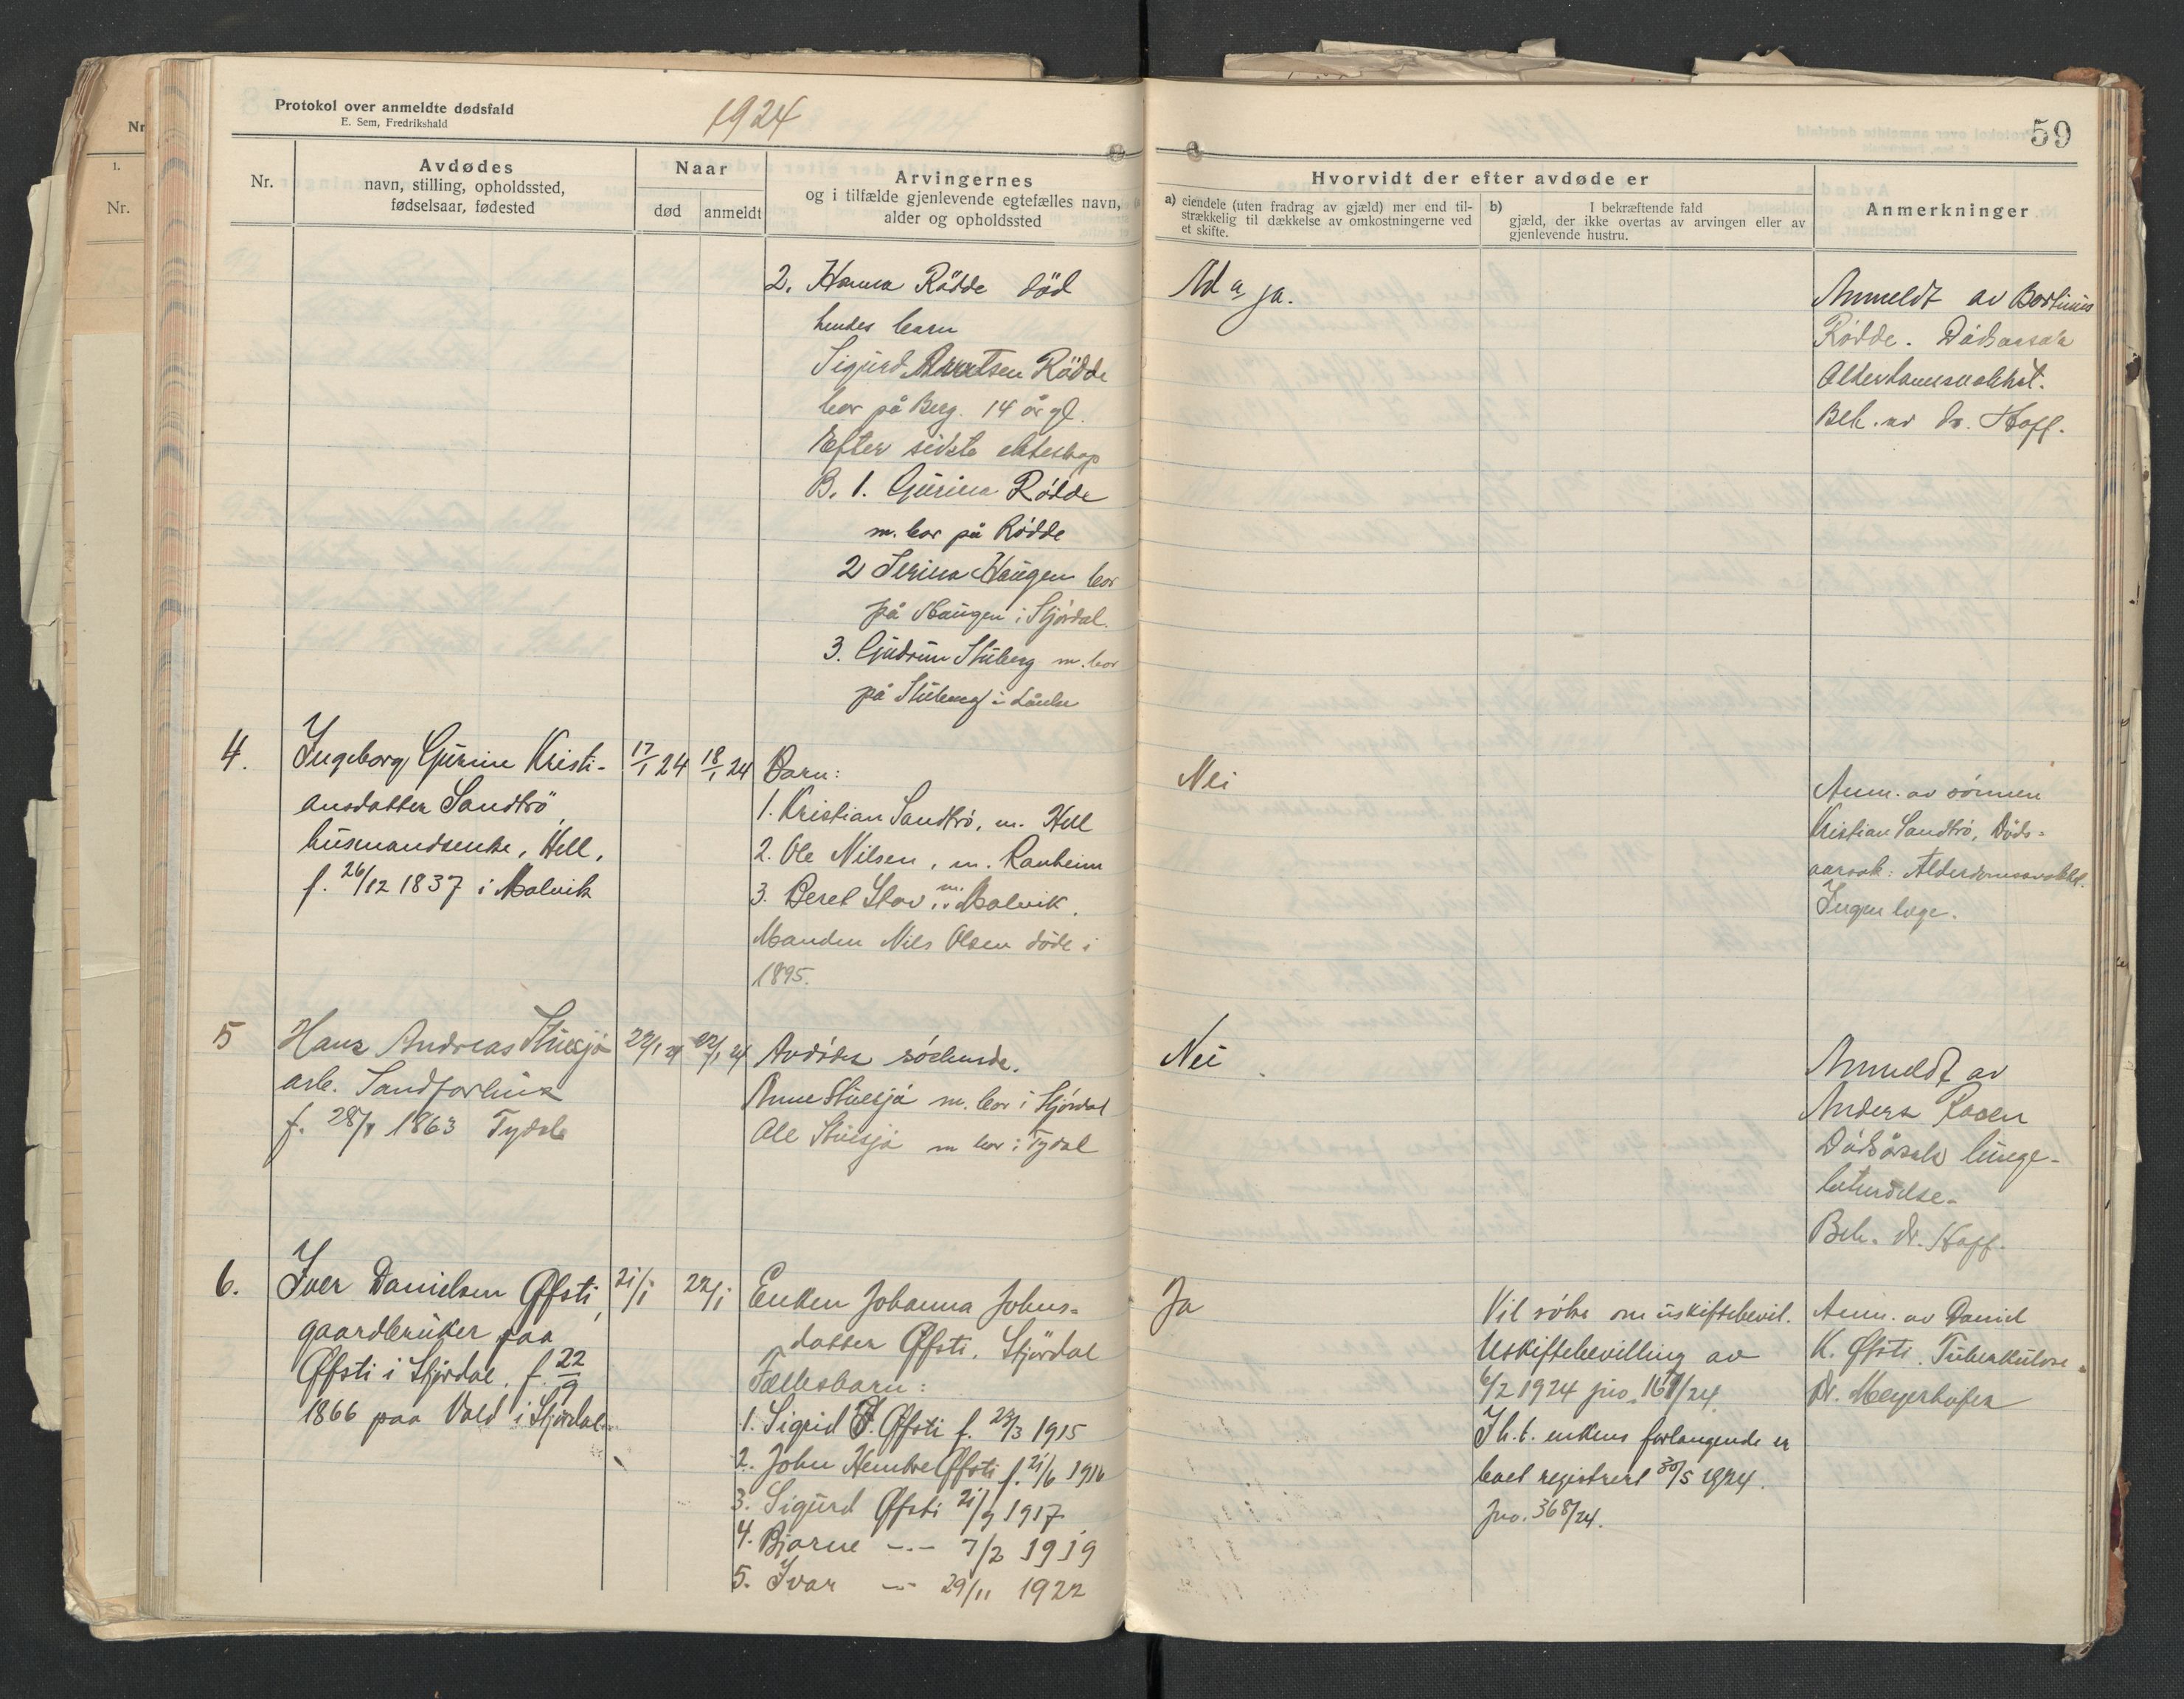 Protokol over anmeldte dødsfald
E. Sem, Fredrikshald
1924
Nr.
Avdødes
navn, stilling, opholdssted,
fødselsaar, fødested
Naar
død
anmeldt
Arvingernes
og i tilfælde gjenlevende egtefælles navn,
alder og opholdssted
59
Hvorvidt der efter avdøde er
a) eiendele (uten fradrag av gjæld) mer end til-
strækkelig til dækkelse av omkostningerne ved
et skifte.
b) I bekræftende fald
gjæld, der ikke overtas av arvingen eller av
gjenlevende hustru.
Anmerkninger
Nr
1.
Nr.
2. Hanna Rödde död
hendes barn
Sigurd Arntsen Rödde
bor på Berg. 14 år gl.
Efter sidste ekteskap
B. 1. Gurina Rödde
m. bor på Rödde
2 Serina Haugen bor
på Haugen i Stjördal.
3. Gudrun Stuberg m. bor
på Stuberg i Lånke
Ad a, ja.
Anmeldt av Bertinus
Rödde. Dödsarsak
Alderdomssvakhet.
Beh. av dr. Hoff.
4.
Ingeborg Gurine Kristi-
ansdatter Sandtrö,
husmandsenke, Hell,
f. 26/12 1837 i Malvik
17/1 24
18/1 24
Barn:
1. Kristian Sandtrö, m. Hell
2. Ole Nilsen, m. Ranheim
3. Beret Stav m. Malvik.
Manden Nils Olsen döde i
1895.
Nei
Anm. av sönnen
Kristian Sandtrö, Döds-
aarsak: Alderdomssvakhet.
Ingen læge.
5
Hans Andreas Stuesjö
arb. Sandforhus
f. 28/8 1863 Tydal
22/1 24
22/1 24
Avdödes söskende.
Anne Stuesjö m. bor i Stjördal
Ole Stuesjö m bor i Tydal
Nei
Anmeldt av
Anders
Dödsårsak lunge-
betendelse.
Beh. dr. Hoff.
6.
Iver Danielsen Øfsti,
gaardbruker paa
Øfsti i Stjördal. f. 22/9
1866 paa Vold i Stjördal.
21/1
22/1
Enken Johanna Johns-
datter Øfsti, Stjördal
Fællesbarn:
1. Sigrid J. Øfsti f. 23/3 1915
2. John Hembre Øfsti f. 21/6 1916
3. Sigurd Øfsti 21/9 1917
4. Bjarne -.- 7/2 1919
5. Ivar -.- 29/11 1922
Ja
Vil söke om uskiftebevil.
Uskiftebevilling av
6/2 1924 jno. 167/24.
I h.t. enkens forlangende er
boet registrert 30/5 1924.
Jno. 368/24.
Anm. av Daniel
K. Øfsti. Tuberkulose.
Dr. Meyerhofer